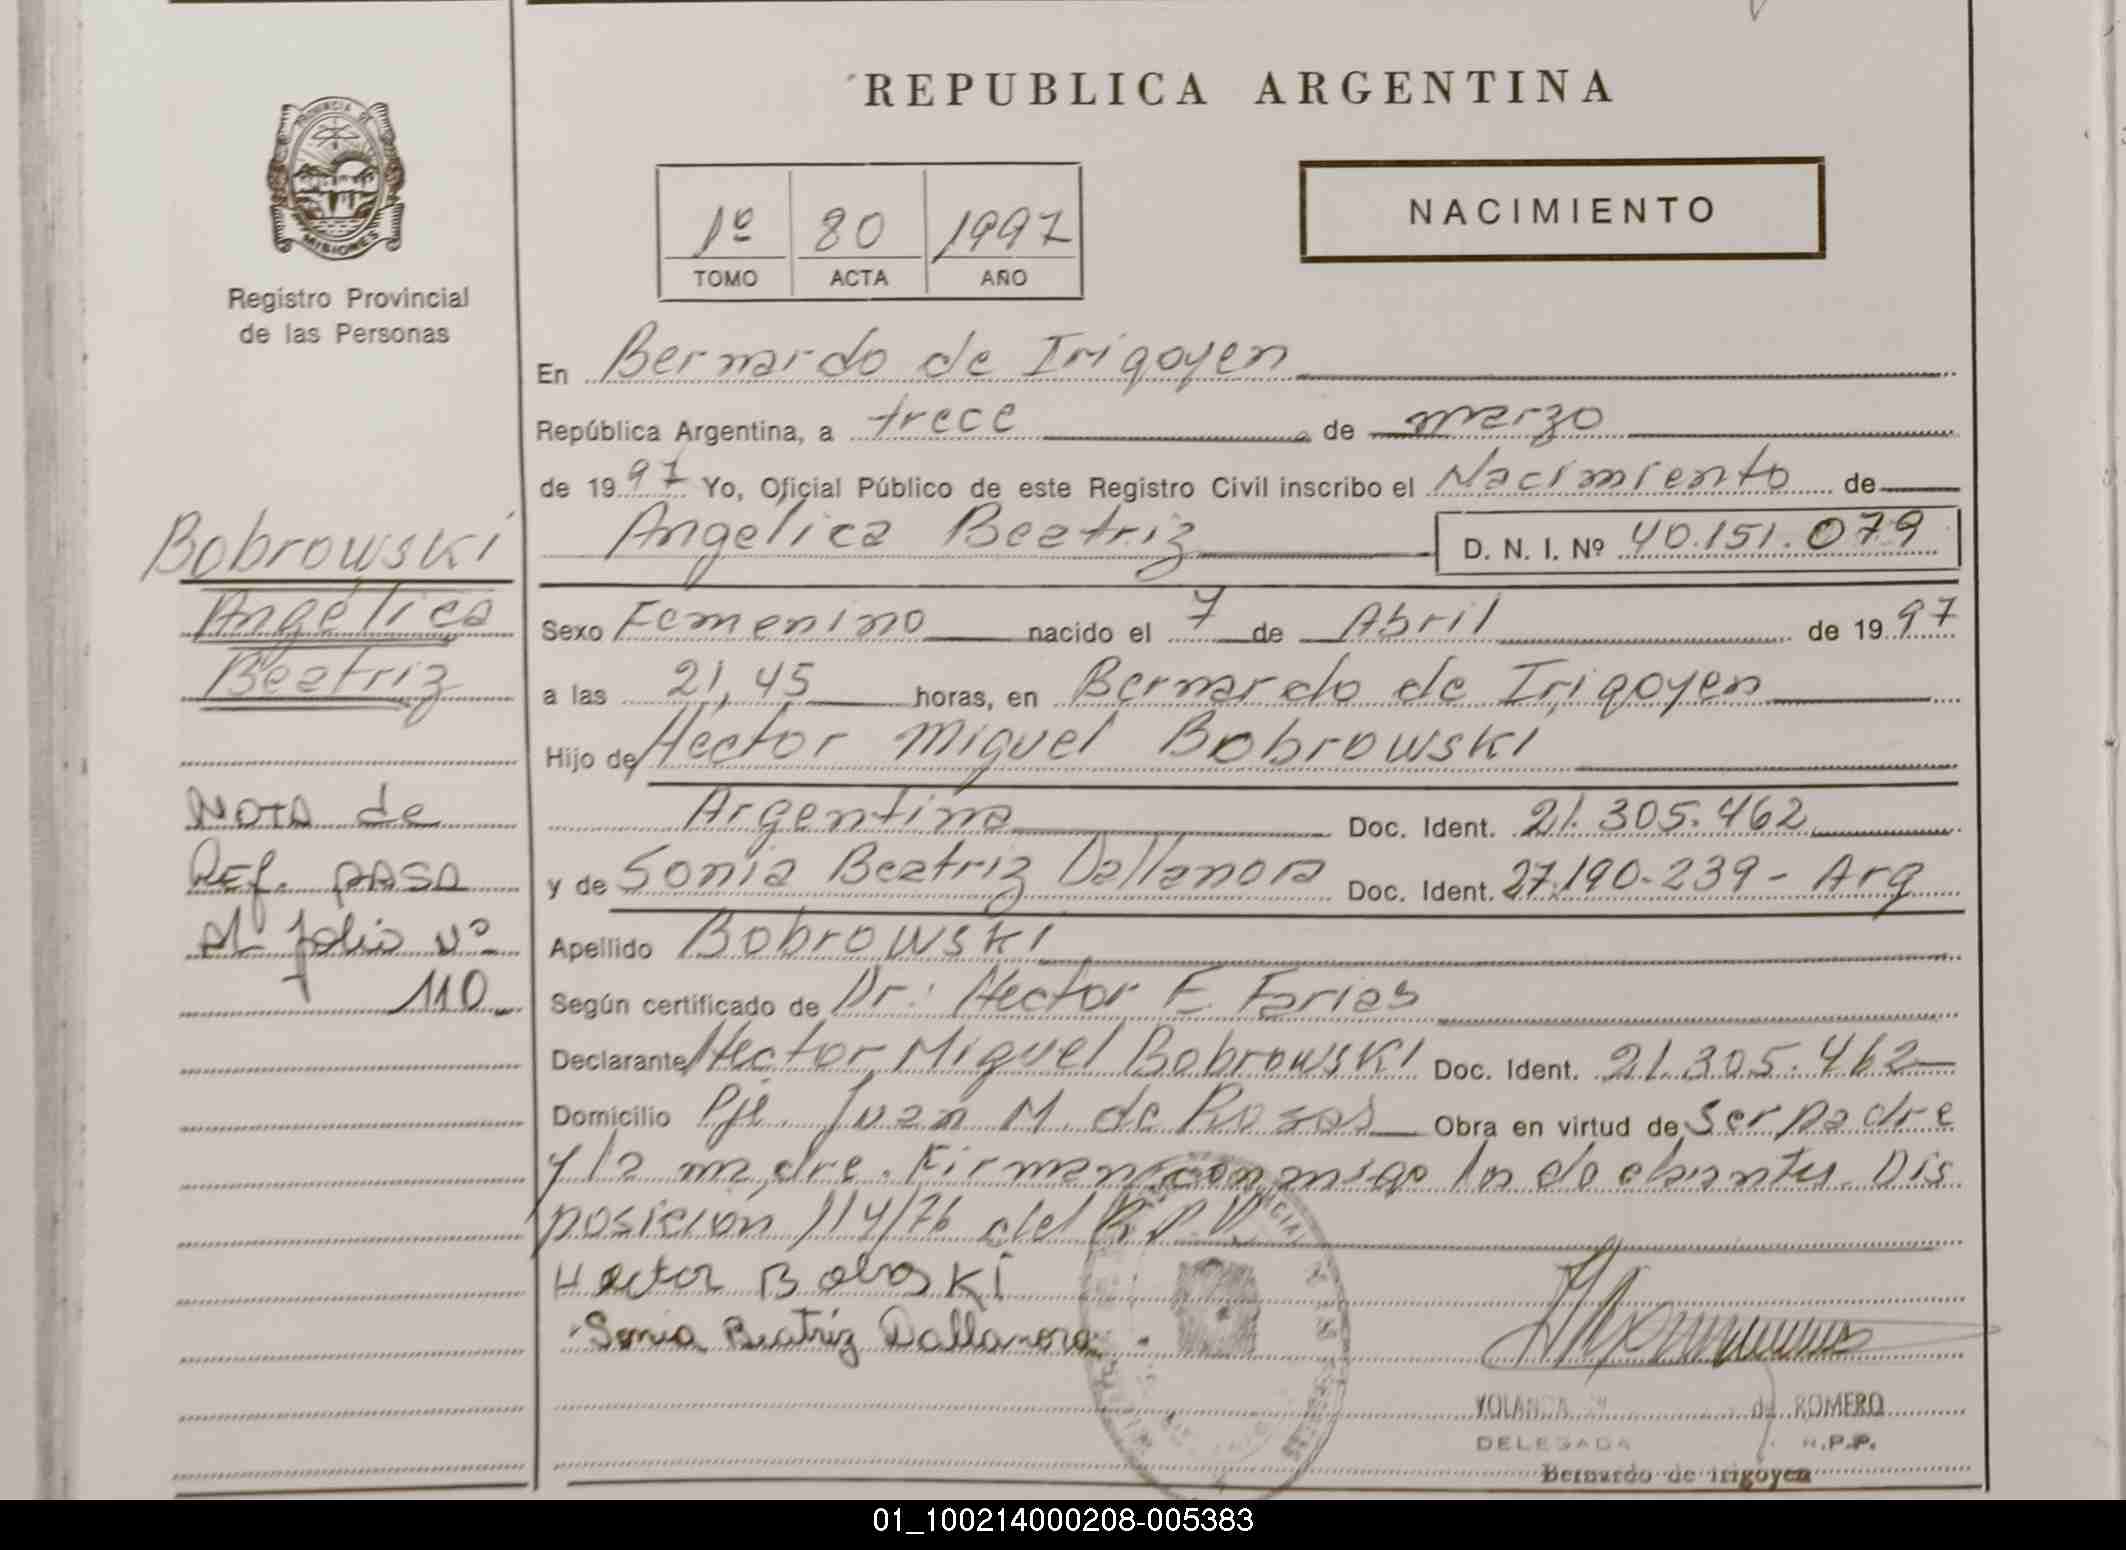 REPUBLICA ARGENTINA
PROVINCIA DE
MISIONES
Registro Provincial
de las Personas
1º 80 1997
TOMO ACTA AÑO
NACIMIENTO
En Bernardo de Irigoyen
República Argentina, a trece de marzo
de 1997 Yo, Oficial Público de este Registro Civil inscribo el Nacimiento de
Angélica Beatriz D. N. I. Nº 40.151.079
Sexo Femenino nacido el 7 de Abril de 1997
a las 21,45 horas, en Bernardo de Irigoyen
Hijo de Héctor Miguel Bobrowski
Argentina Doc. Ident. 21.305.462
y de Sonia Beatriz Dallanora Doc. Ident. 27.190.239 - Arg
Apellido Bobrowski
Según certificado de Dr: Hector F. Farias
Declarante Hector Miguel Bobrowski Doc. Ident. 21.305.462
Domicilio Pje. Juan M. de Rosas Obra en virtud de ser padre
y la madre. Firman conmigo Dis
posición 114/76 del R.P.P.
Hector Boboski
Sonia Beatriz Dallanora
YOLANDA de ROMERO
DELEGADA R.P.P.
Bernardo de Irigoyen
Bobrowski
Angélica
Beatriz
NOTA de
Ref. PASA
Al folio Nº
110
01_100214000208-005383